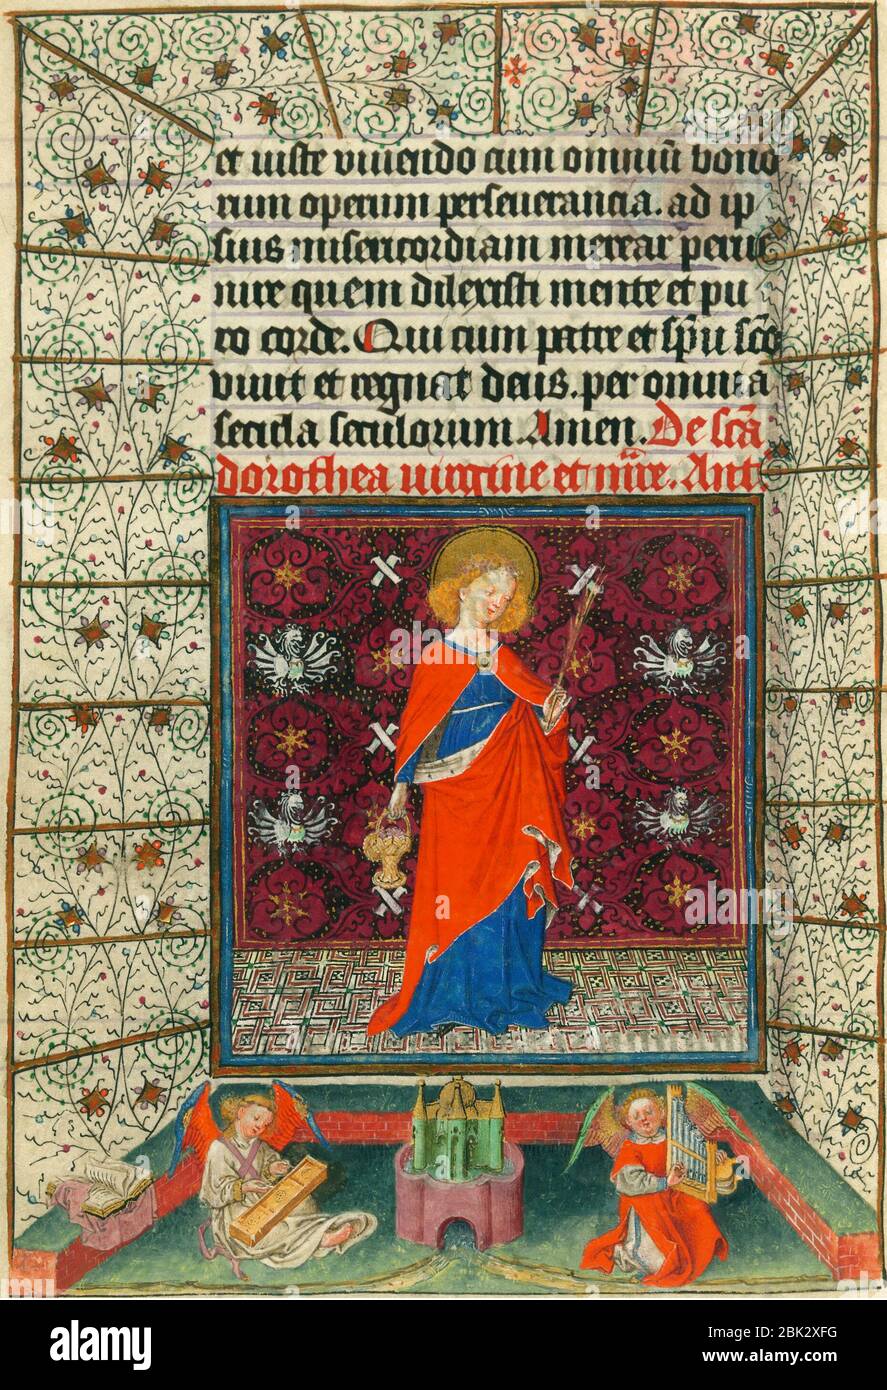 et iuste vivendo cum omniū bono
rum operum perseverancia. ad ip
sius misericordiam merear perue
nire quem dilexisti mente et pu
ro corde. Qui cum patre et sp̄u sc̄o
vivit et regnat deus. per omnia
secula seculorum. Amen. De sc̄a
dorothea virgine et mr̄e. Ant.
alamy
Image ID: 2BK2XFG
www.alamy.com